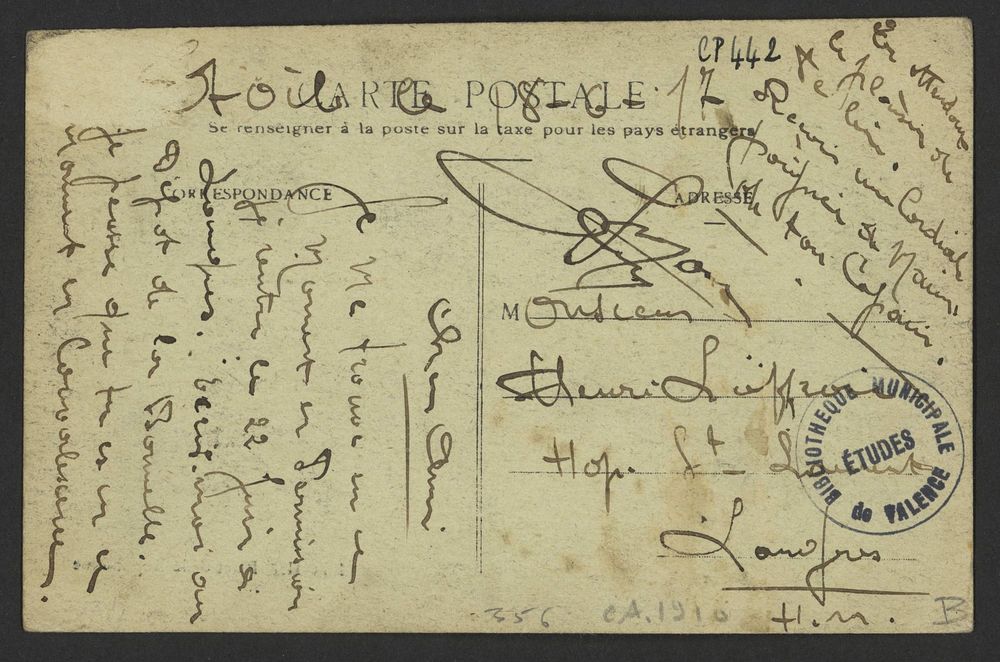 CP 442
CARTE POSTALE
le 18-6-17
Se renseigner à la poste sur la taxe pour les pays étrangers
CORRESPONDANCE
ADRESSE
Cher Ami
Je me trouve en ce
Moment en Permission
rentre le 22 Juin à
Langres. Ecris moi au
Dépôt de la
je pense que tu es en ce
Moment en Convalescence.
En attendant
le plaisir de
te lire.
Reçois une Cordiale
Poignée de Mains,
de ton Copain.
Monsieur
Henri
Hop. St-Laurent
Langres
H.M.
BIBLIOTHEQUE MUNICIPALE
ÉTUDES
de VALENCE
356
CA.1910
B